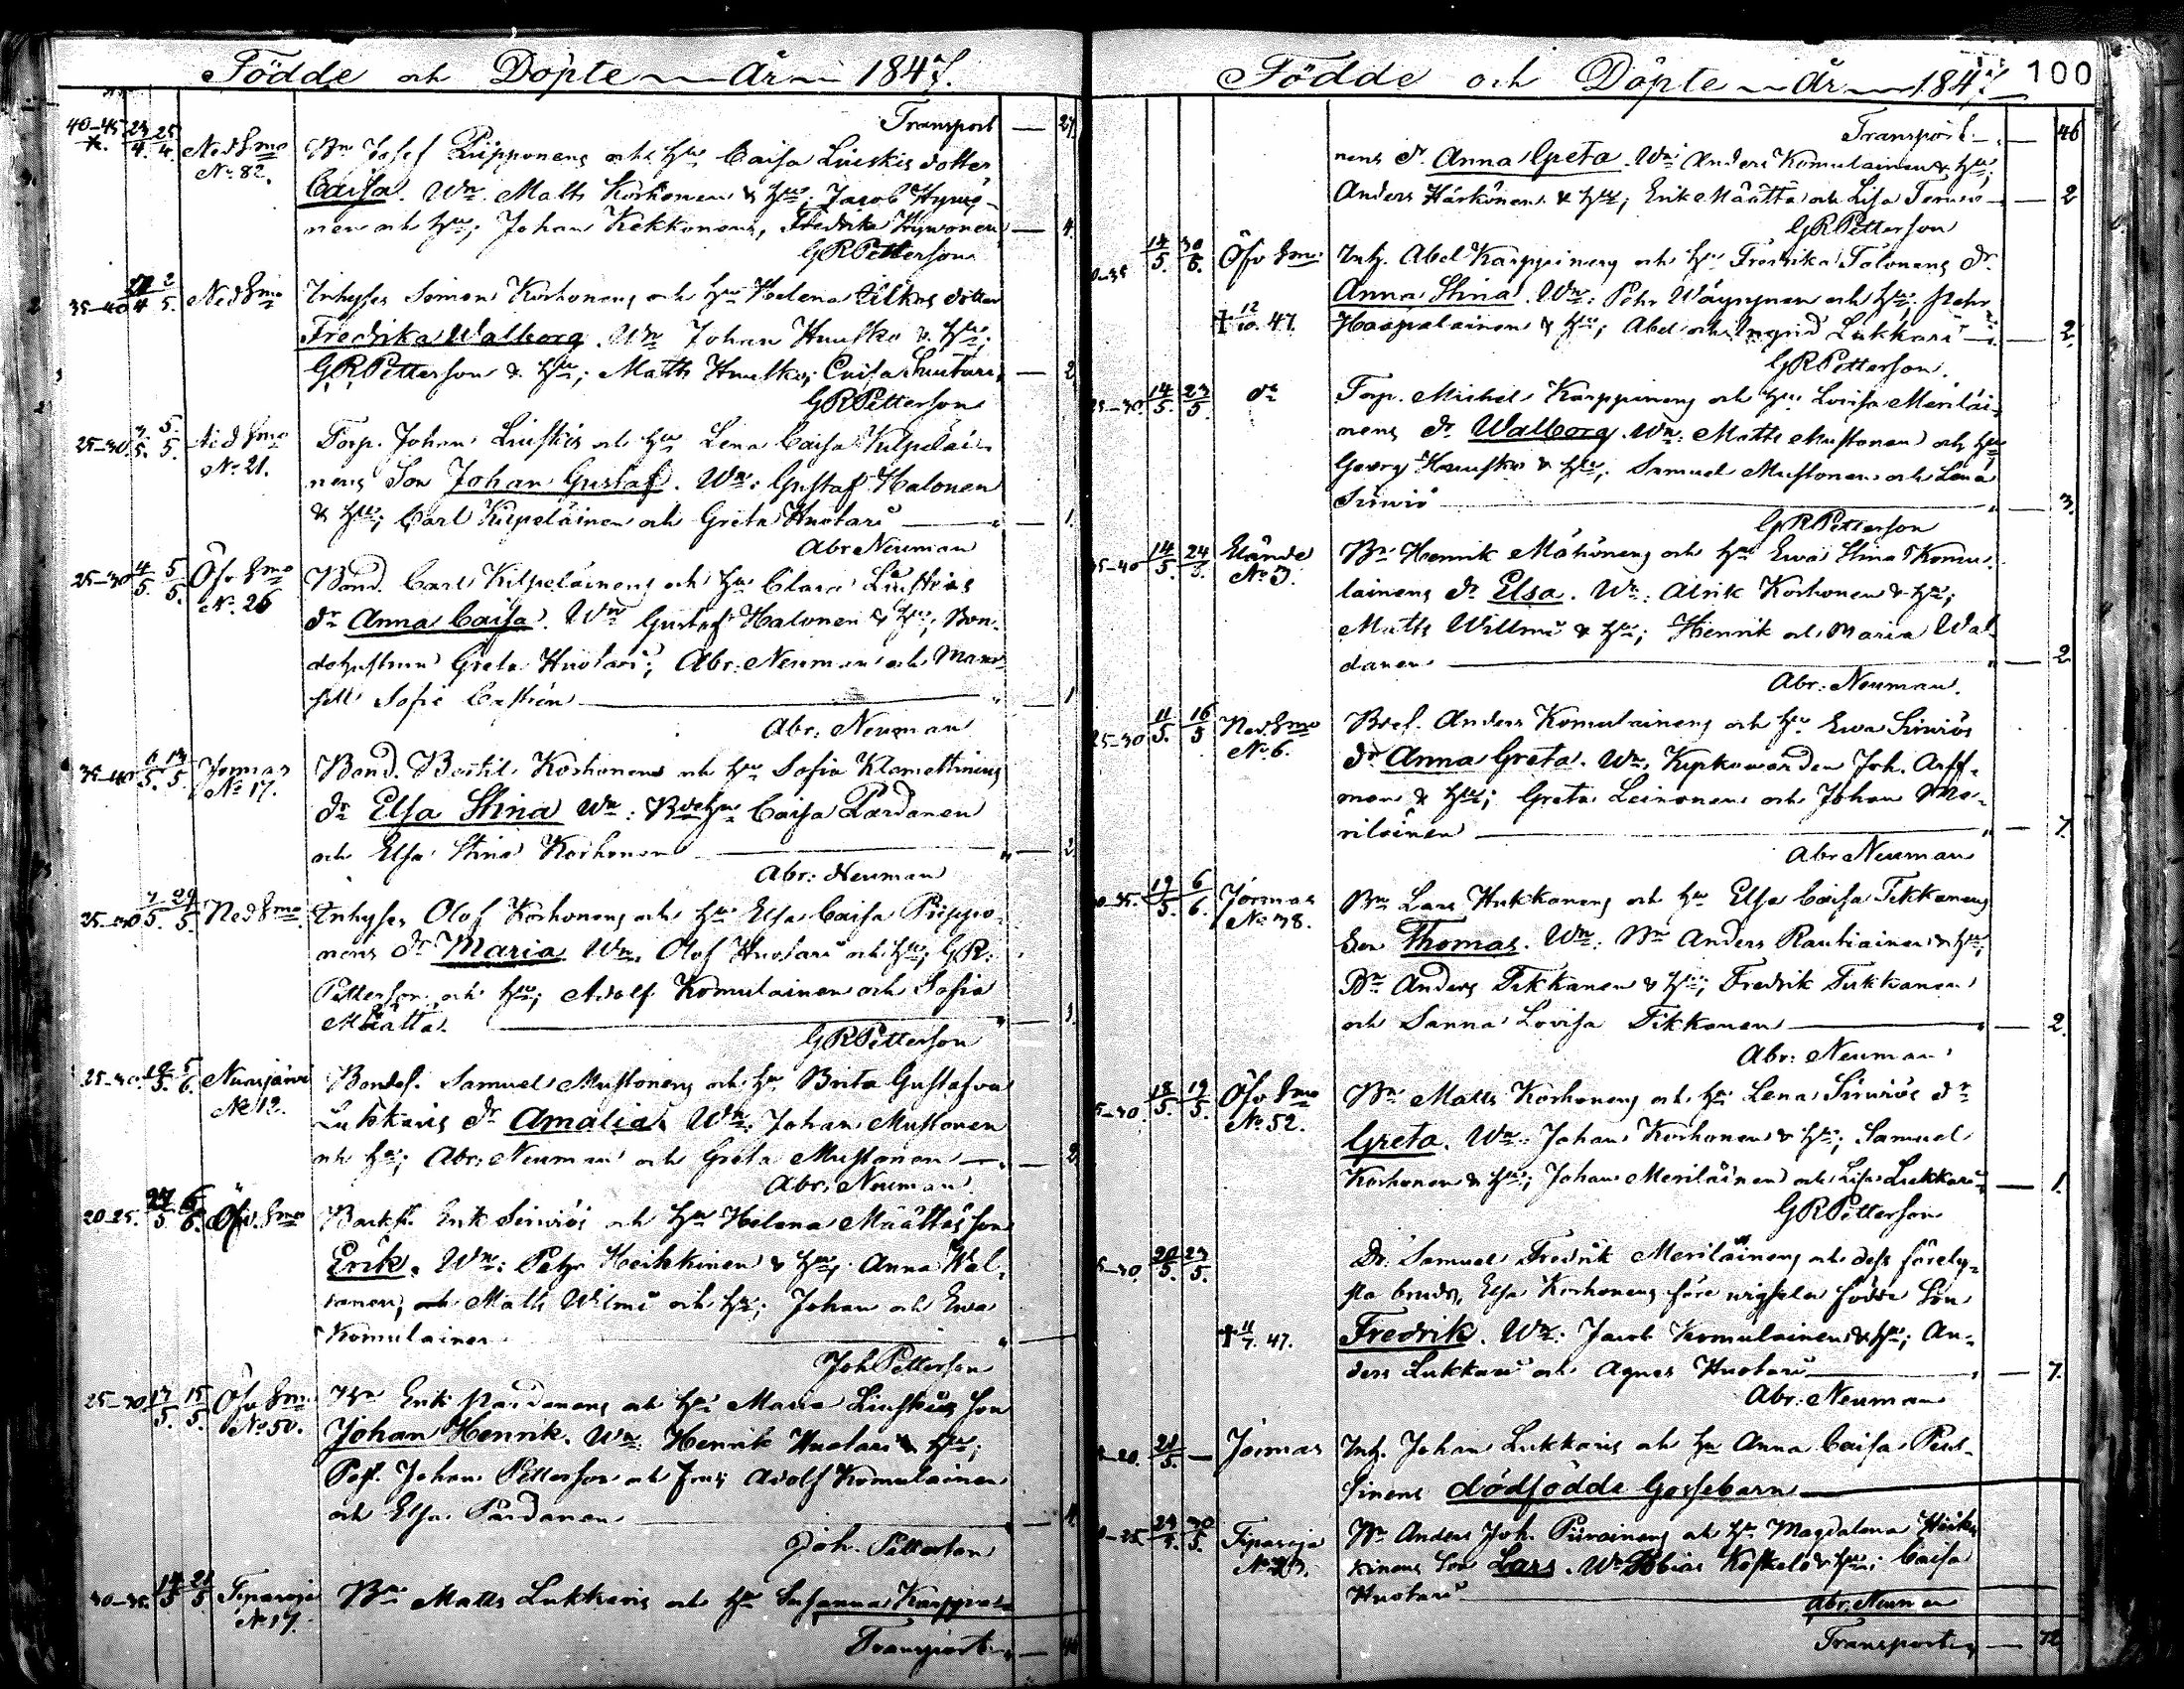 Födde och Döpte År 1847.
Transport — 27.
40–45 23/4 25/4 Ned Smo Bn Josef Piipponens och hu Caisa Liuskis dotter
No 82. Caisa. Wn. Matts Korhonen & hu; Jacob Hyvö-
nen och hu; Johan Kekkonens, Fredrika Hyvönen — 4.
GRPetterson
35–40 4 2/5 Ned Smo Inhyses Simon Korhonens och hu Helena dotter
Fredrika Walborg. Wn Johan Huusko & hu;
GRPetterson & hu; Matts Huusko; Caisa Huotari — 2
GRPetterson
25–30 5. 5/5. Ned Smo Torp. Johan Liuskis och hu Lena Caisa Kilpeläi-
No 21. nens Son Johan Gustaf. Wn: Gustaf Halonen
& hu; Carl Kilpeläinen och Greta Huotari — 1.
Abr Neuman
25–30 4/5 5/5. Öfv Smo Bond. Carl Kilpeläinens och hu Clara Liuskias
No. 26 dr Anna Caisa. Wn Gustaf Halonen & hu; Bon-
dehustrun Greta Huotari; Abr. Neuman och Mam-
sell Sofie Castrén — 1
Abr: Neuman
35–40 5. 13/5 Jormas Bond. Bertil Korhonens och hu Sofia Klemettinens
No 17. dr Elsa Stina Wn: Bdehu Caisa Pardanen
och Elsa Stina Korhonen — 2
Abr: Neuman
25–30 7/5. 29/5. Ned Smo. Inhyses Olof Korhonens och hu Elsa Caisa Piippo-
nens dr Maria Wn. Olof Huotari och hu; GR.
Petterson och hu; Adolf Komulainen och Sofia
Määttä. — 3.
GRPetterson
25–30 5. 5/6. Nurmijärvi Bondes. Samuel Mustonens och hu Brita Gustafva
No 12. Lukkaris dr Amalia. Wn. Johan Mustonen
och hu; Abr: Neuman och Greta Mustonen — 2
Abr. Neuman.
20–25. 27/5 6/6. Öfv. Smo Backst. Erik Sirviös och hu Helena Määttäs son
Erik. Wn: Petr Heikkinen & hu; Anna Wal-
danen, och Matts Wilmi och hu; Johan och Ewa
Komulainen — "
Joh Petterson
25–30 17/5. 15/5. Öfv Smo Bn Erik Pardanens och hu Maria Liuskias son
No 50. Johan Henrik. Wn: Henrik Huotari & hu;
Johan Petterson och Fru; Adolf Komulainen
och Elsa Pardanen — 4.
Joh. Petterson
30–35. 14/5 21/5 Tipasoja Bn Matts Lukkaris och hu Susanna Karppi-
No 17. Transport — 46
Födde och Döpte År 1847 100
Transport — 46
nens dr. Anna Greta. Wn: Anders Komulainen & hu;
Anders Härkönen & hu; Erik Määttä och Lisa — 2
GRPetterson
14/5. 30/5. Öfv Smo Inh. Abel Karppinens och hu Fredrika Tolonens dr.
Anna Stina. Wn: Pehr Wäyrynen och hu; Pehr
† 12/10. 47. Haapalainen & hu; Abel och Ingrid Lukkari — 2.
GRPetterson.
25–30. 14/5. 23/5. do Torp. Michel Karppinens och hu Lovisa Meriläi-
nens dr. Walborg. Wn: Matts Mustonen och hu
Georg Huusko & hu; Samuel Mustonen och Lena
Sirviö — 3.
GRPetterson
35–40 14/5. 24/5. Elände Bn Henrik Mähönens och hu Ewa Stina Komu-
No 3. lainens dr Elsa. Wn: Alrik Korhonen & hu;
Matts Willmi & hu; Henrik och Maria Wal-
danen — 2
Abr: Neuman.
25–30 11/5. 16/5 Ned. Smo Anders Komulainens och hu Ewa Sirviös
No 6. dr Anna Greta. Wn. Kyrkowärden Joh. Arff-
man & hu; Greta Leinonen och Johan Me-
riläinen — 7.
Abr Neuman
30–35. 19/5. 6/6. Jormas Bn Lars Hukkanens och hu Elsa Caisa Tikkanens
No 38. Son Thomas. Wn. Bn Anders Rautiainen & hu;
Bn Anders Tikkanen & hu; Fredrik Tikkanen
och Sanna Lovisa Tikkanen — 2.
Abr: Neuman
25–30. 18/5. 19/5. Öfv Smo Bn Matts Korhonens och hu Lena Sirviös dr
No 52. Greta. Wn: Johan Korhonen & hu; Samuel
Korhonen & hu; Johan Meriläinen och Lisa Lukkari — 1.
GRPetterson
25–30. 20/5. 23/5. Dr. Samuel Fredrik Meriläinens och dess
Elsa Korhonens före wigseln födde Son
† 11/7. 47. Fredrik. Wn: Jacob Komulainen & hu; An-
ders Lukkari och Agnes Huotari — 7.
Abr: Neuman
21/5. — Jormas Inh. Johan Lukkaris och hu Anna Caisa
sinens dödfödde Gossebarn —
20–25. 23/5. 30/5. Tipasoja Bn Anders Joh. Piirainens och hu Magdalena Heik-
kinens Son Lars. Wn Tobias Koskelo & hu; Caisa
Huotari —
Abr. Neuman
Transport — 72